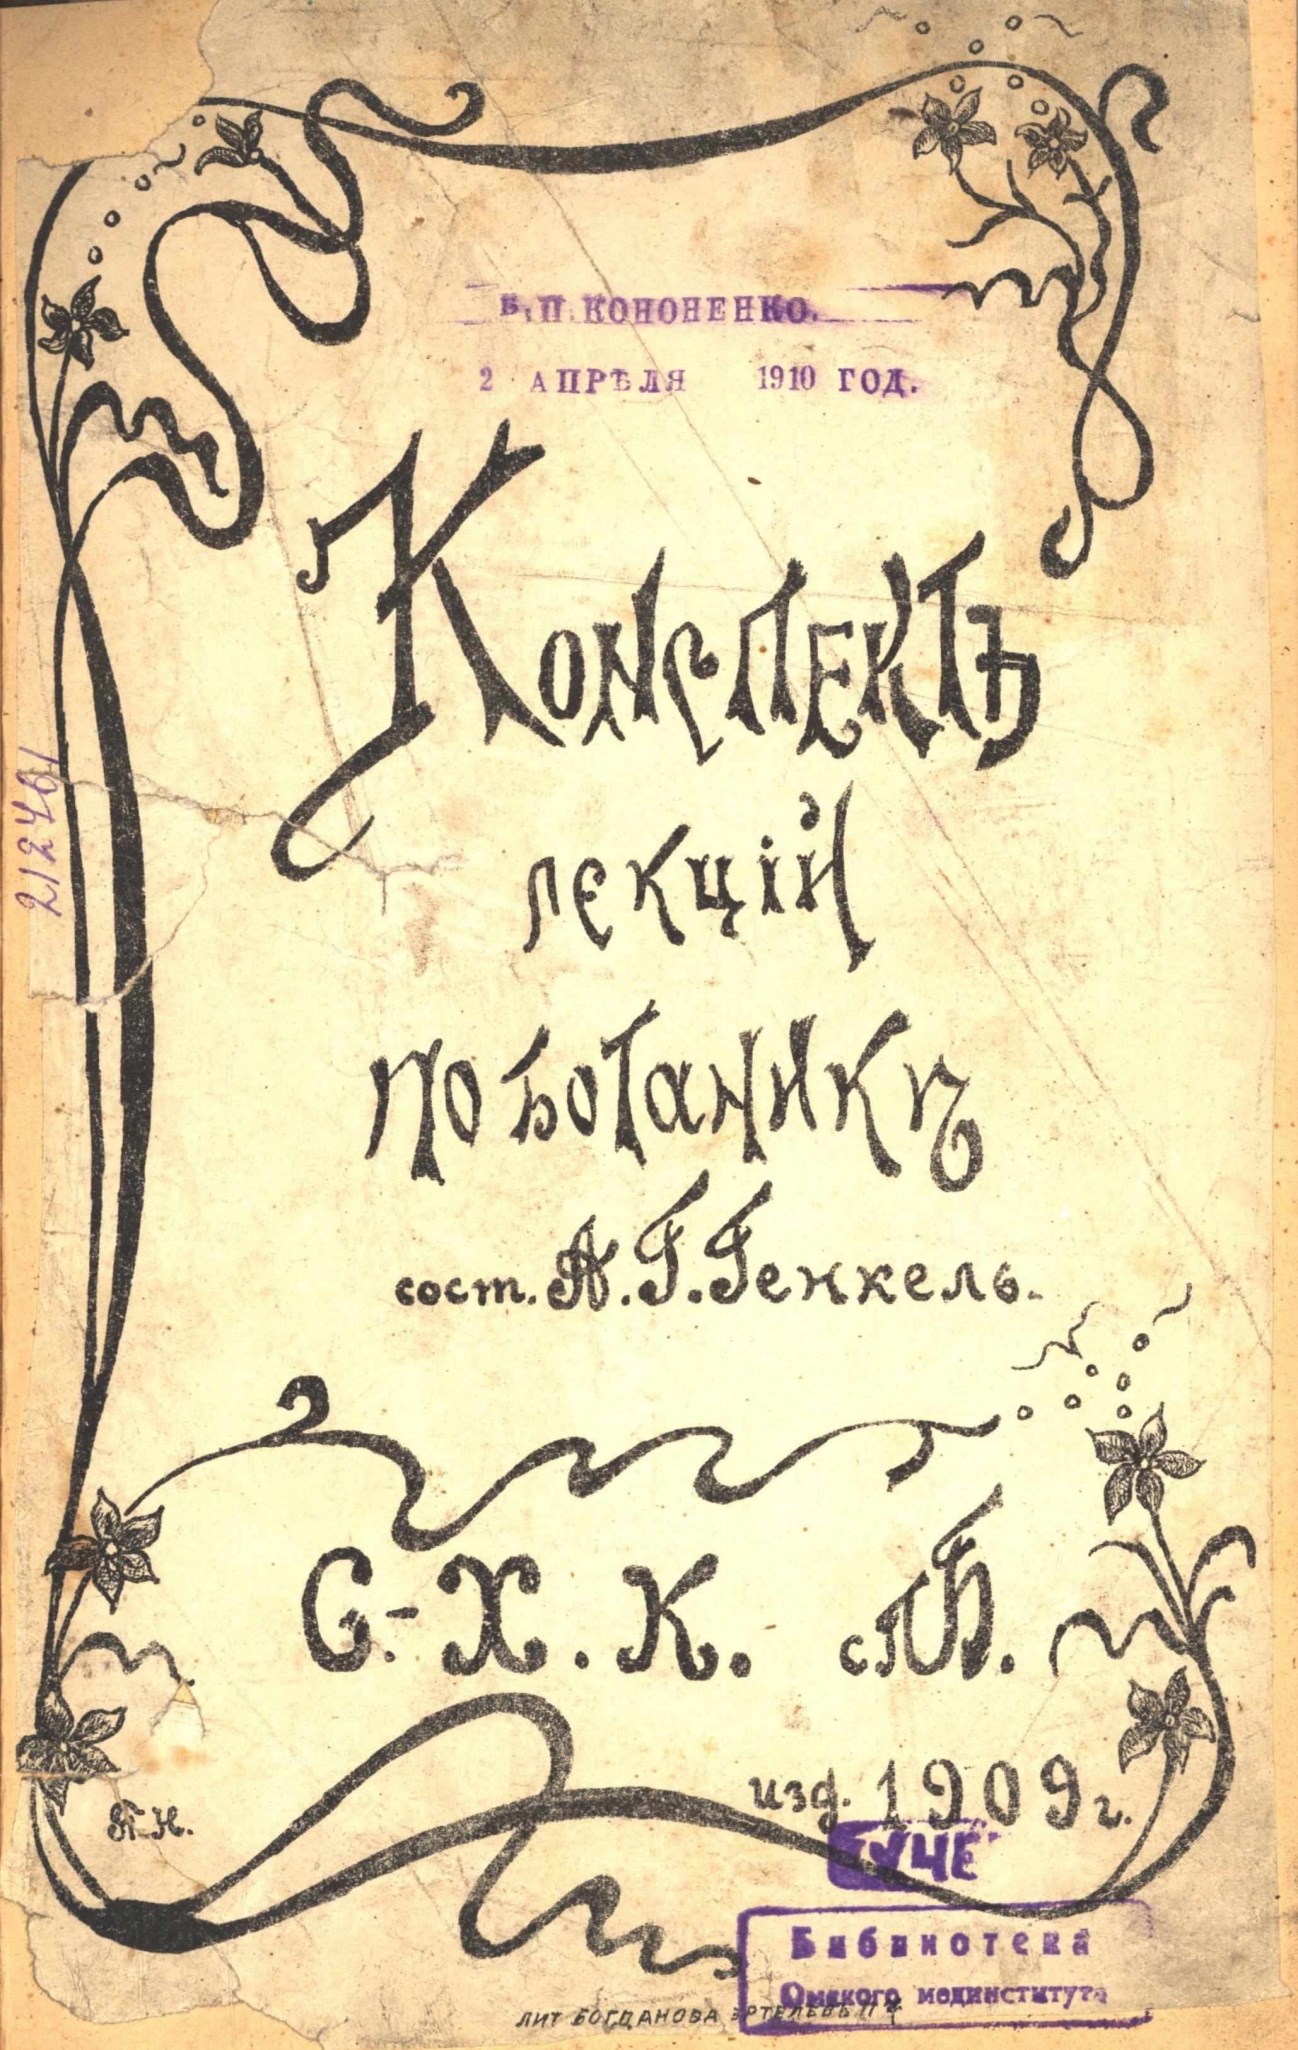 Б.П.КОНОНЕНКО.
2 АПРѢЛЯ 1910 ГОД.
Конспектъ
лекцій
по ботаникѣ
сост. А.Г.Генкель.
С.-Х.К. СПБ.
изд. 1909 г.
П.Н.
Библиотека
Омского мединститута
ЛИТ БОГДАНОВА ЭРТЕЛЕВЪ П 7
212461